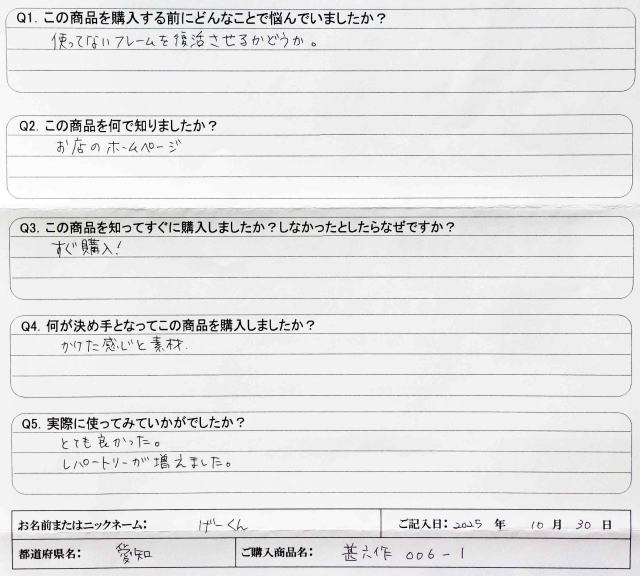 Q1. この商品を購入する前にどんなことで悩んでいましたか？
使ってないフレームを復活させるかどうか。
Q2. この商品を何で知りましたか？
お店のホームページ
Q3. この商品を知ってすぐに購入しましたか？しなかったとしたらなぜですか？
すぐ購入！
Q4. 何が決め手となってこの商品を購入しましたか？
かけた感じと素材.
Q5. 実際に使ってみていかがでしたか？
とても良かった。
レパートリーが増えました。
お名前またはニックネーム： げーくん ご記入日：2025 年 10 月 30 日
都道府県名： 愛知 ご購入商品名： 甚六作 006-1